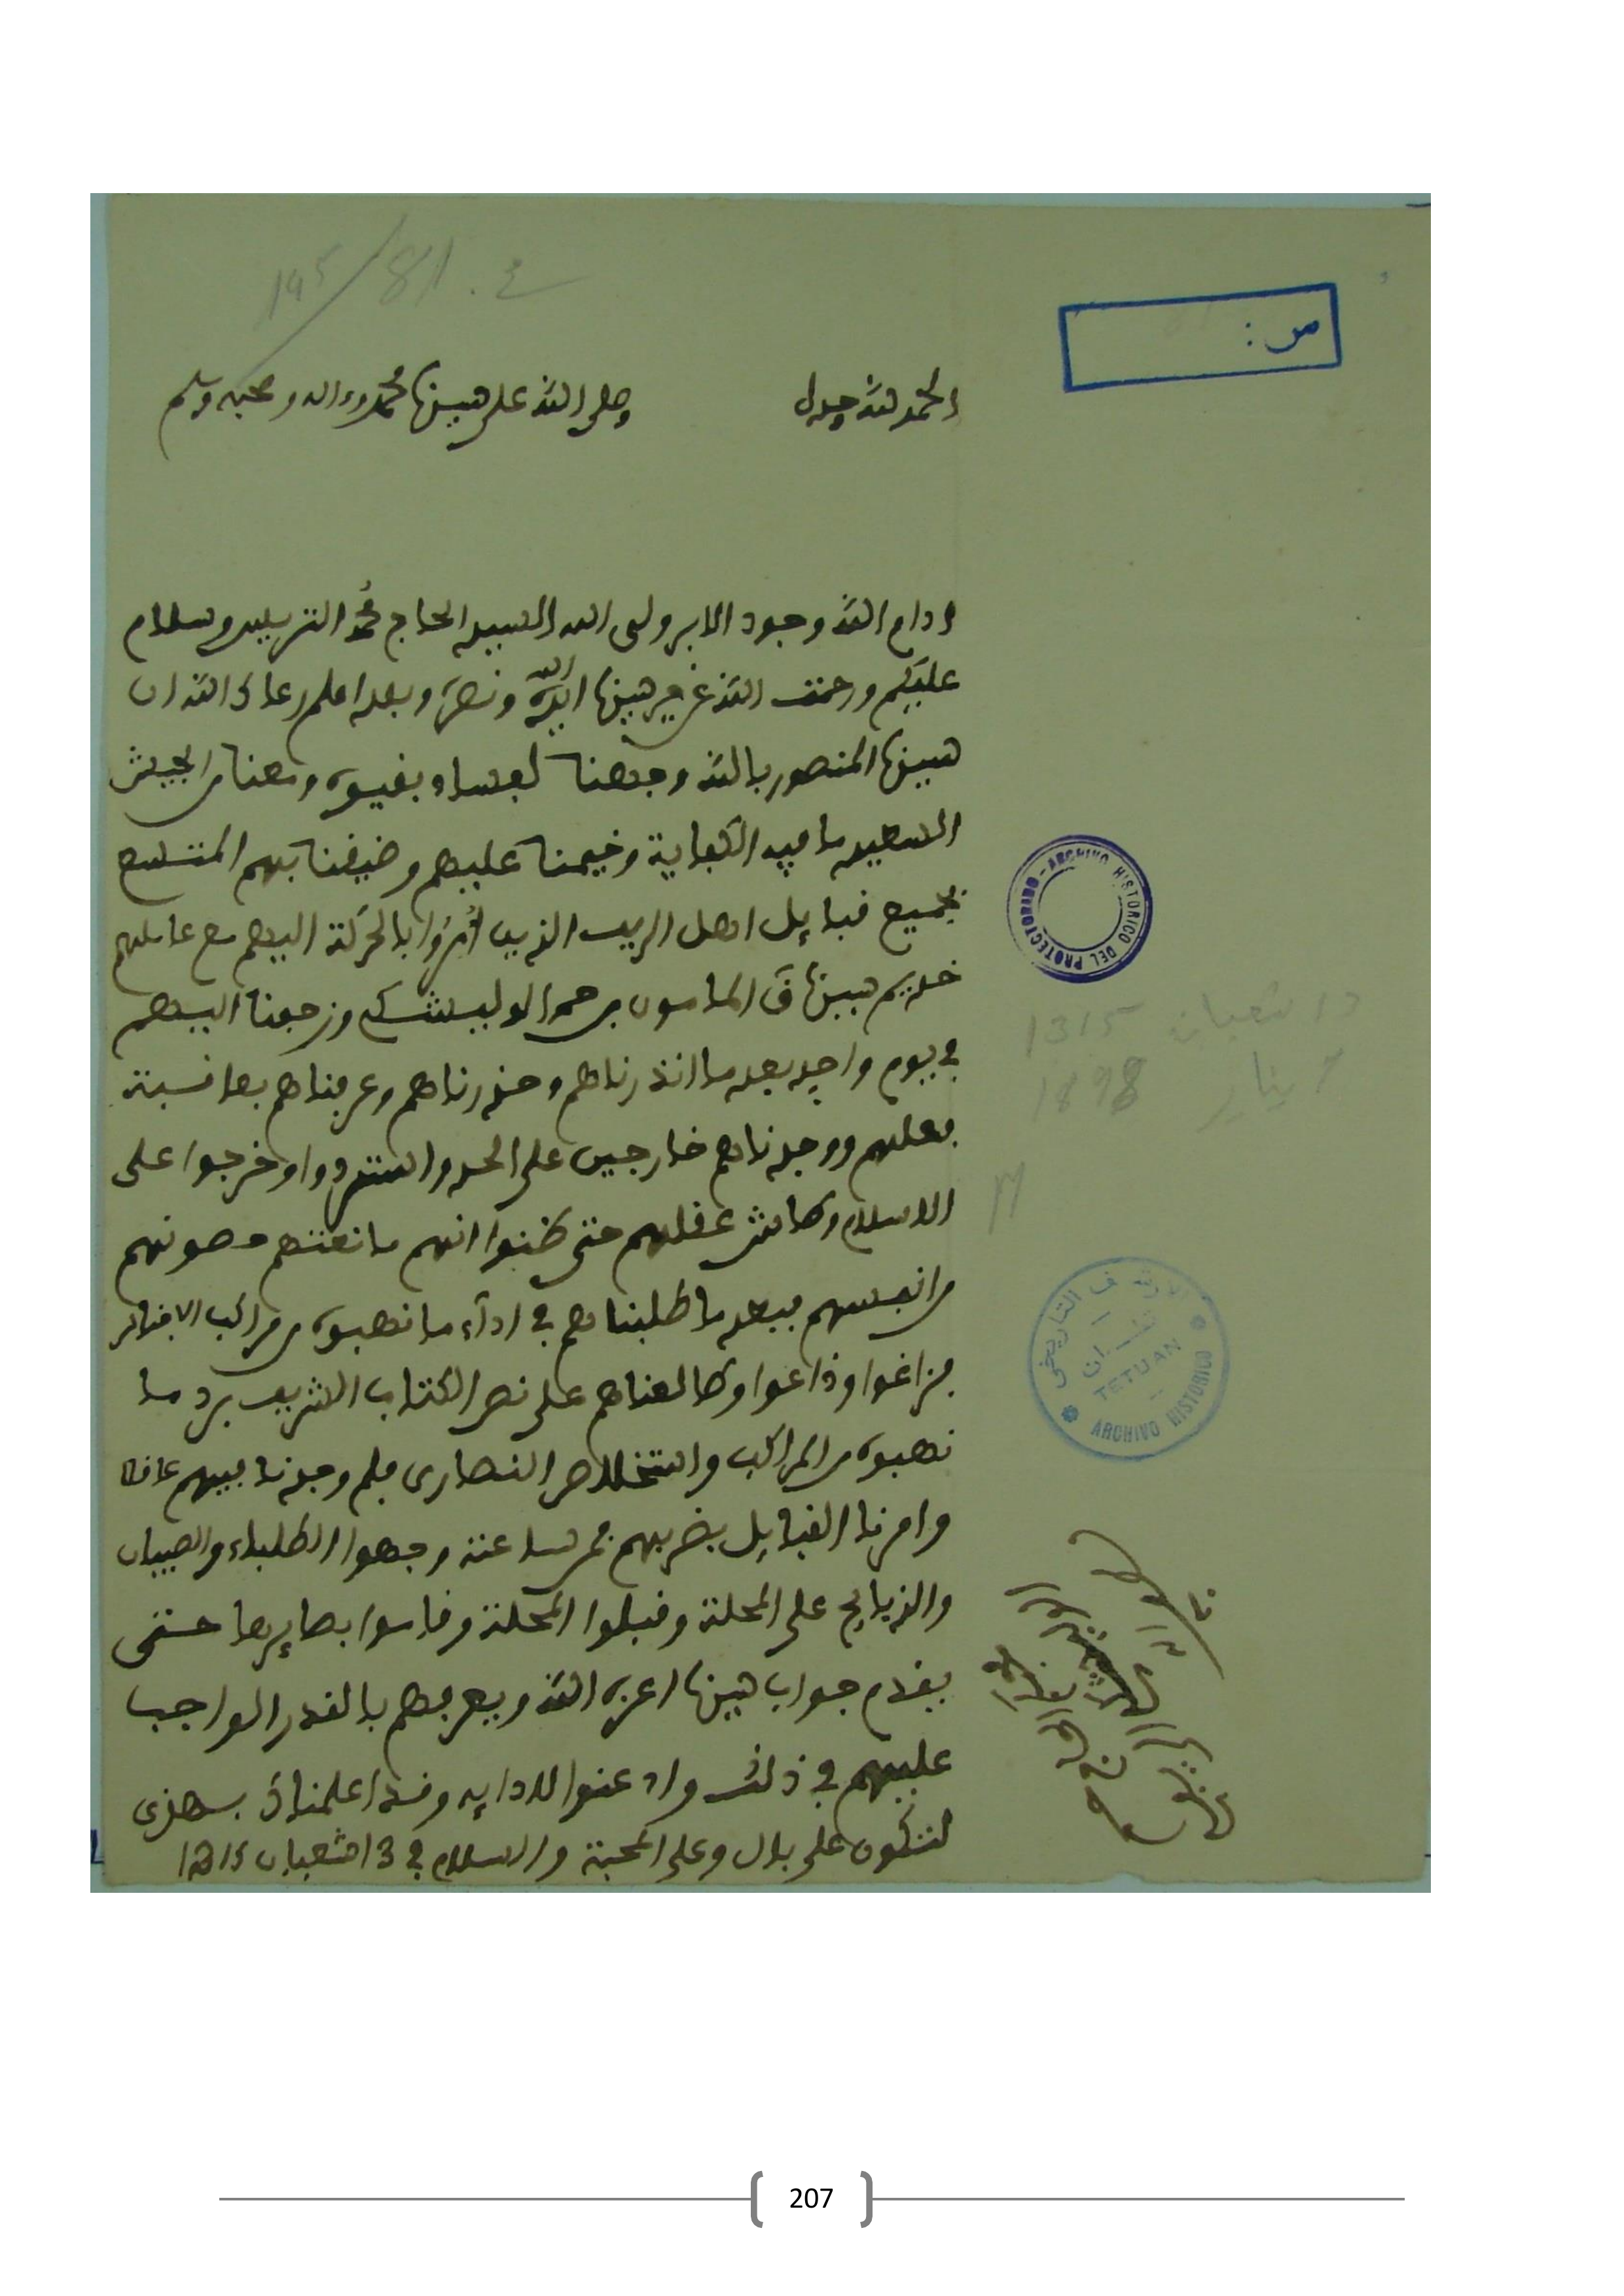 ص:
الحمد لله وحده
وصلى الله على سيدنا محمد وءاله وصحبه وسلم
ادام الله وجود الابر ولى الله السيد الحاج محمد الزبدي وسلام
عليكم ورحمت الله عن خير سيدنا ايده الله ونصره وبعد اعلم رعاك الله ان
سيدنا المنصور بالله وجهنا لفساد بقيوه ومعنا من الجيش
السعيد ما فيه الكفاية وخيمنا عليهم وضيقنا بهم المتسع
بجميع قبايل اهل الريف الذين أُمِرُوا بالحركة اليهم مع عاملهم
خديم سيدنا ق المامون بن حم الوليشكي وزحفنا اليهم
في يوم واحد بعد ما انذرناهم وحذرناهم وعرفناهم بعاقبة
فعلهم ووجدناهم خارجين على الحد واستمردوا وخرجوا على
الاسلام وطاش عقلهم حتى ظنوا انهم مانعتهم حصونهم
من انفسهم فبعد ما طلبناهم في ادآء ما نهبوه من مراكب الاجناس
فزاغوا وذاعوا وطالعناهم على نص الكتاب الشريف برد ما
نهبوه من المراكب واستخلاص النصارى فلم وجدنا فيهم عاقلا
وامرنا القبايل بضربهم فمن ساعته وجهوا الطلباء والصبيان
والذبايح على المحلة وقبلوا المحلة وقاسوا بصايرها حتى
يقدم جواب سيدنا اعزه الله ويعرفهم بالقدر الواجب
عليهم في ذلك واذعنوا لادايه وقد اعلمناك بهذى
لتكون على بال وعلى المحبة والسلام في 13 شعبان 1315
ARCHIVO HISTORICO DEL PROTECTORADO
شعبان 1315
يناير 1898
الارشيف التاريخي
تطوان
TETUAN
ARCHIVO HISTORICO
207